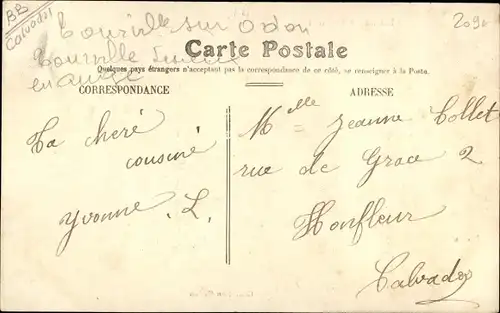 BB
Calvados
Tourville sur Odon
Tourville
en Auge
209
Carte Postale
Quelques pays étrangers n'acceptant pas la correspondance de ce côté, se renseigner à la Poste.
CORRESPONDANCE
ADRESSE
Ta cheré
cousine
Yvonne L.
Melle Jeanne Collet
rue de Grace 2
Honfleur
Calvados